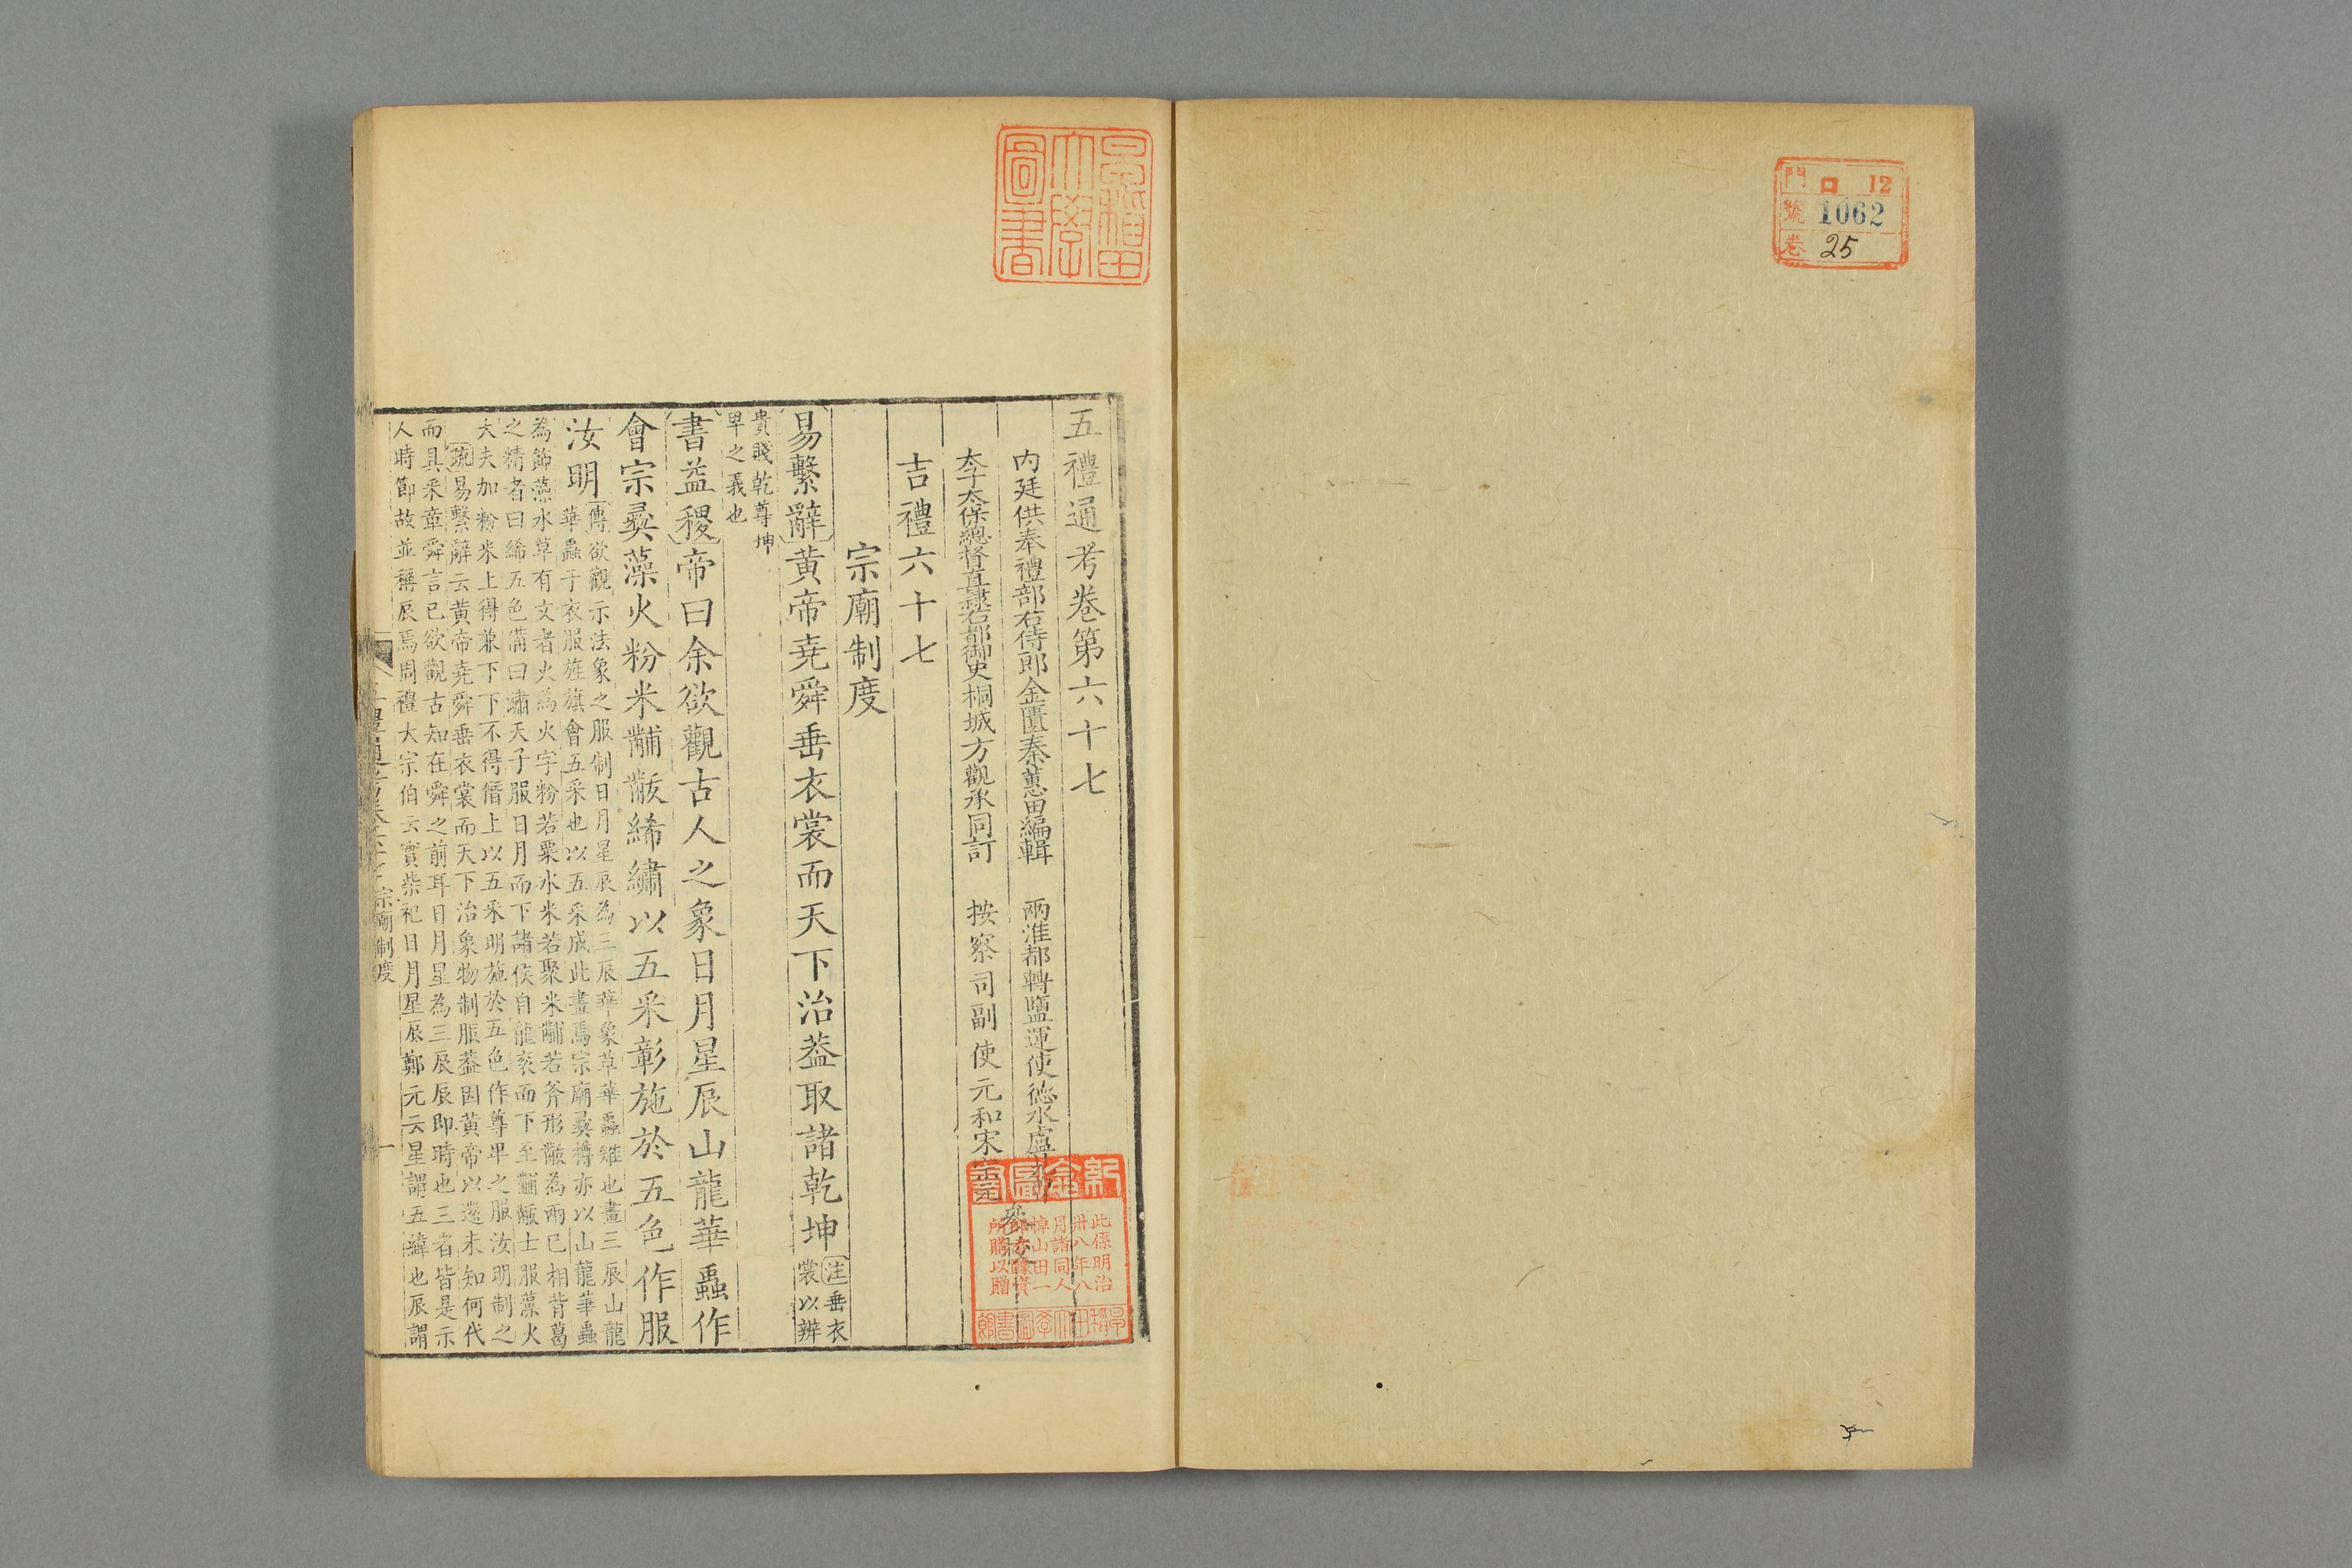 門 口 12
號 1062
卷 25
早稲田
大學
圖書
五禮通考卷第六十七
内廷供奉禮部右侍郎金匱秦蕙田編輯 兩淮都轉鹽運使德水盧
太子太保總督直隷右都御史桐城方觀承同訂 按察司副使元和宋宗元
吉禮六十七
宗廟制度
易繫辭黄帝堯舜垂衣裳而天下治葢取諸乾坤
注垂衣
裳以辨
貴賤乾尊坤
卑之義也
書益稷帝曰余欲觀古人之象日月星辰山龍華蟲作
會宗彝藻火粉米黼黻絺繡以五采彰施於五色作服
汝明
傳欲觀示法象之服制日月星辰為三辰華象草華蟲雉也畫三辰山龍
華蟲于衣服旌旗會五采也以五采成此畫焉宗廟彝樽亦以山龍華蟲
為飾藻水草有文者火為火字粉若粟冰米若聚米黼若斧形黻為兩已相背葛
之精者曰絺五色備曰繡天子服日月而下諸侯自龍衮而下至黼黻士服藻火
大夫加粉米上得兼下下不得僭上以五采明施於五色作尊卑之服汝明制之
疏易繫辭云黄帝堯舜垂衣裳而天下治象物制服葢因黄帝以還未知何代
而具采章舜言已欲觀古知在舜之前耳日月星為三辰辰即時也三者皆是示
人時節故並稱辰焉周禮大宗伯云實柴祀日月星辰鄭元云星謂五緯也辰謂
宗廟制度
一
此係明治
卅八年八
月諸同人
悼山田一
所購以贈
早稲田大學圖書館